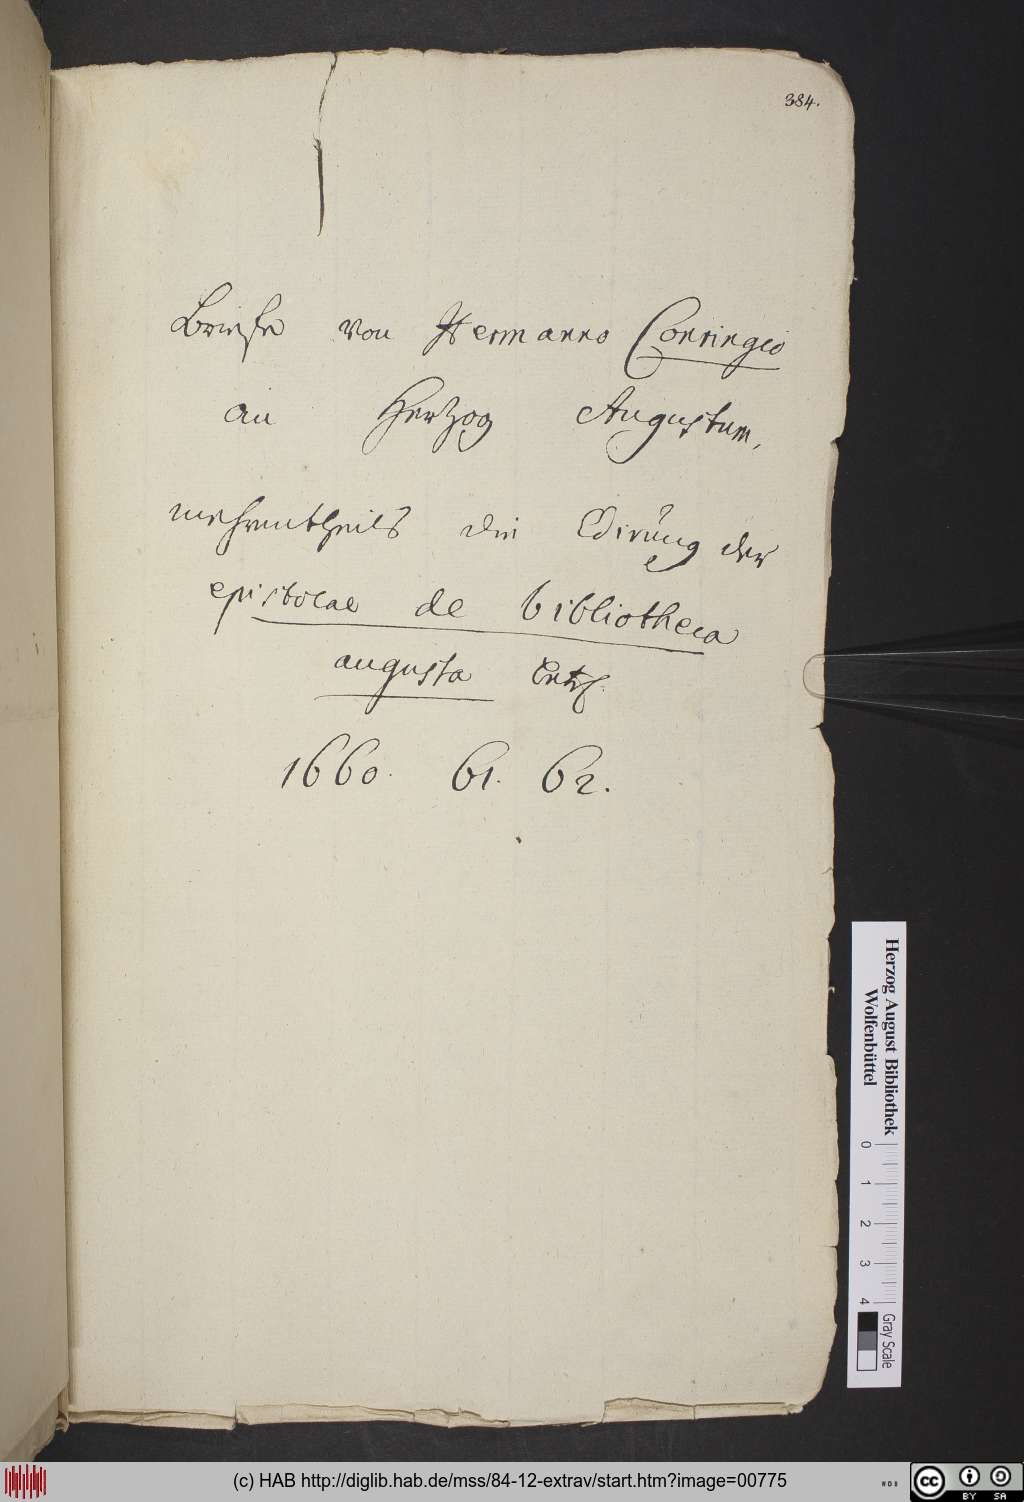 384.
Briefe von Hermanno Conringio
an Herzog Augustum,
mehrentheils die Edirung der
epistolae de bibliotheca
augusta
1660. 61. 62.
Herzog August Bibliothek
Wolfenbüttel
0 1 2 3 4
Gray Scale
(c) HAB http://diglib.hab.de/mss/84-12-extrav/start.htm?image=00775
cc BY SA